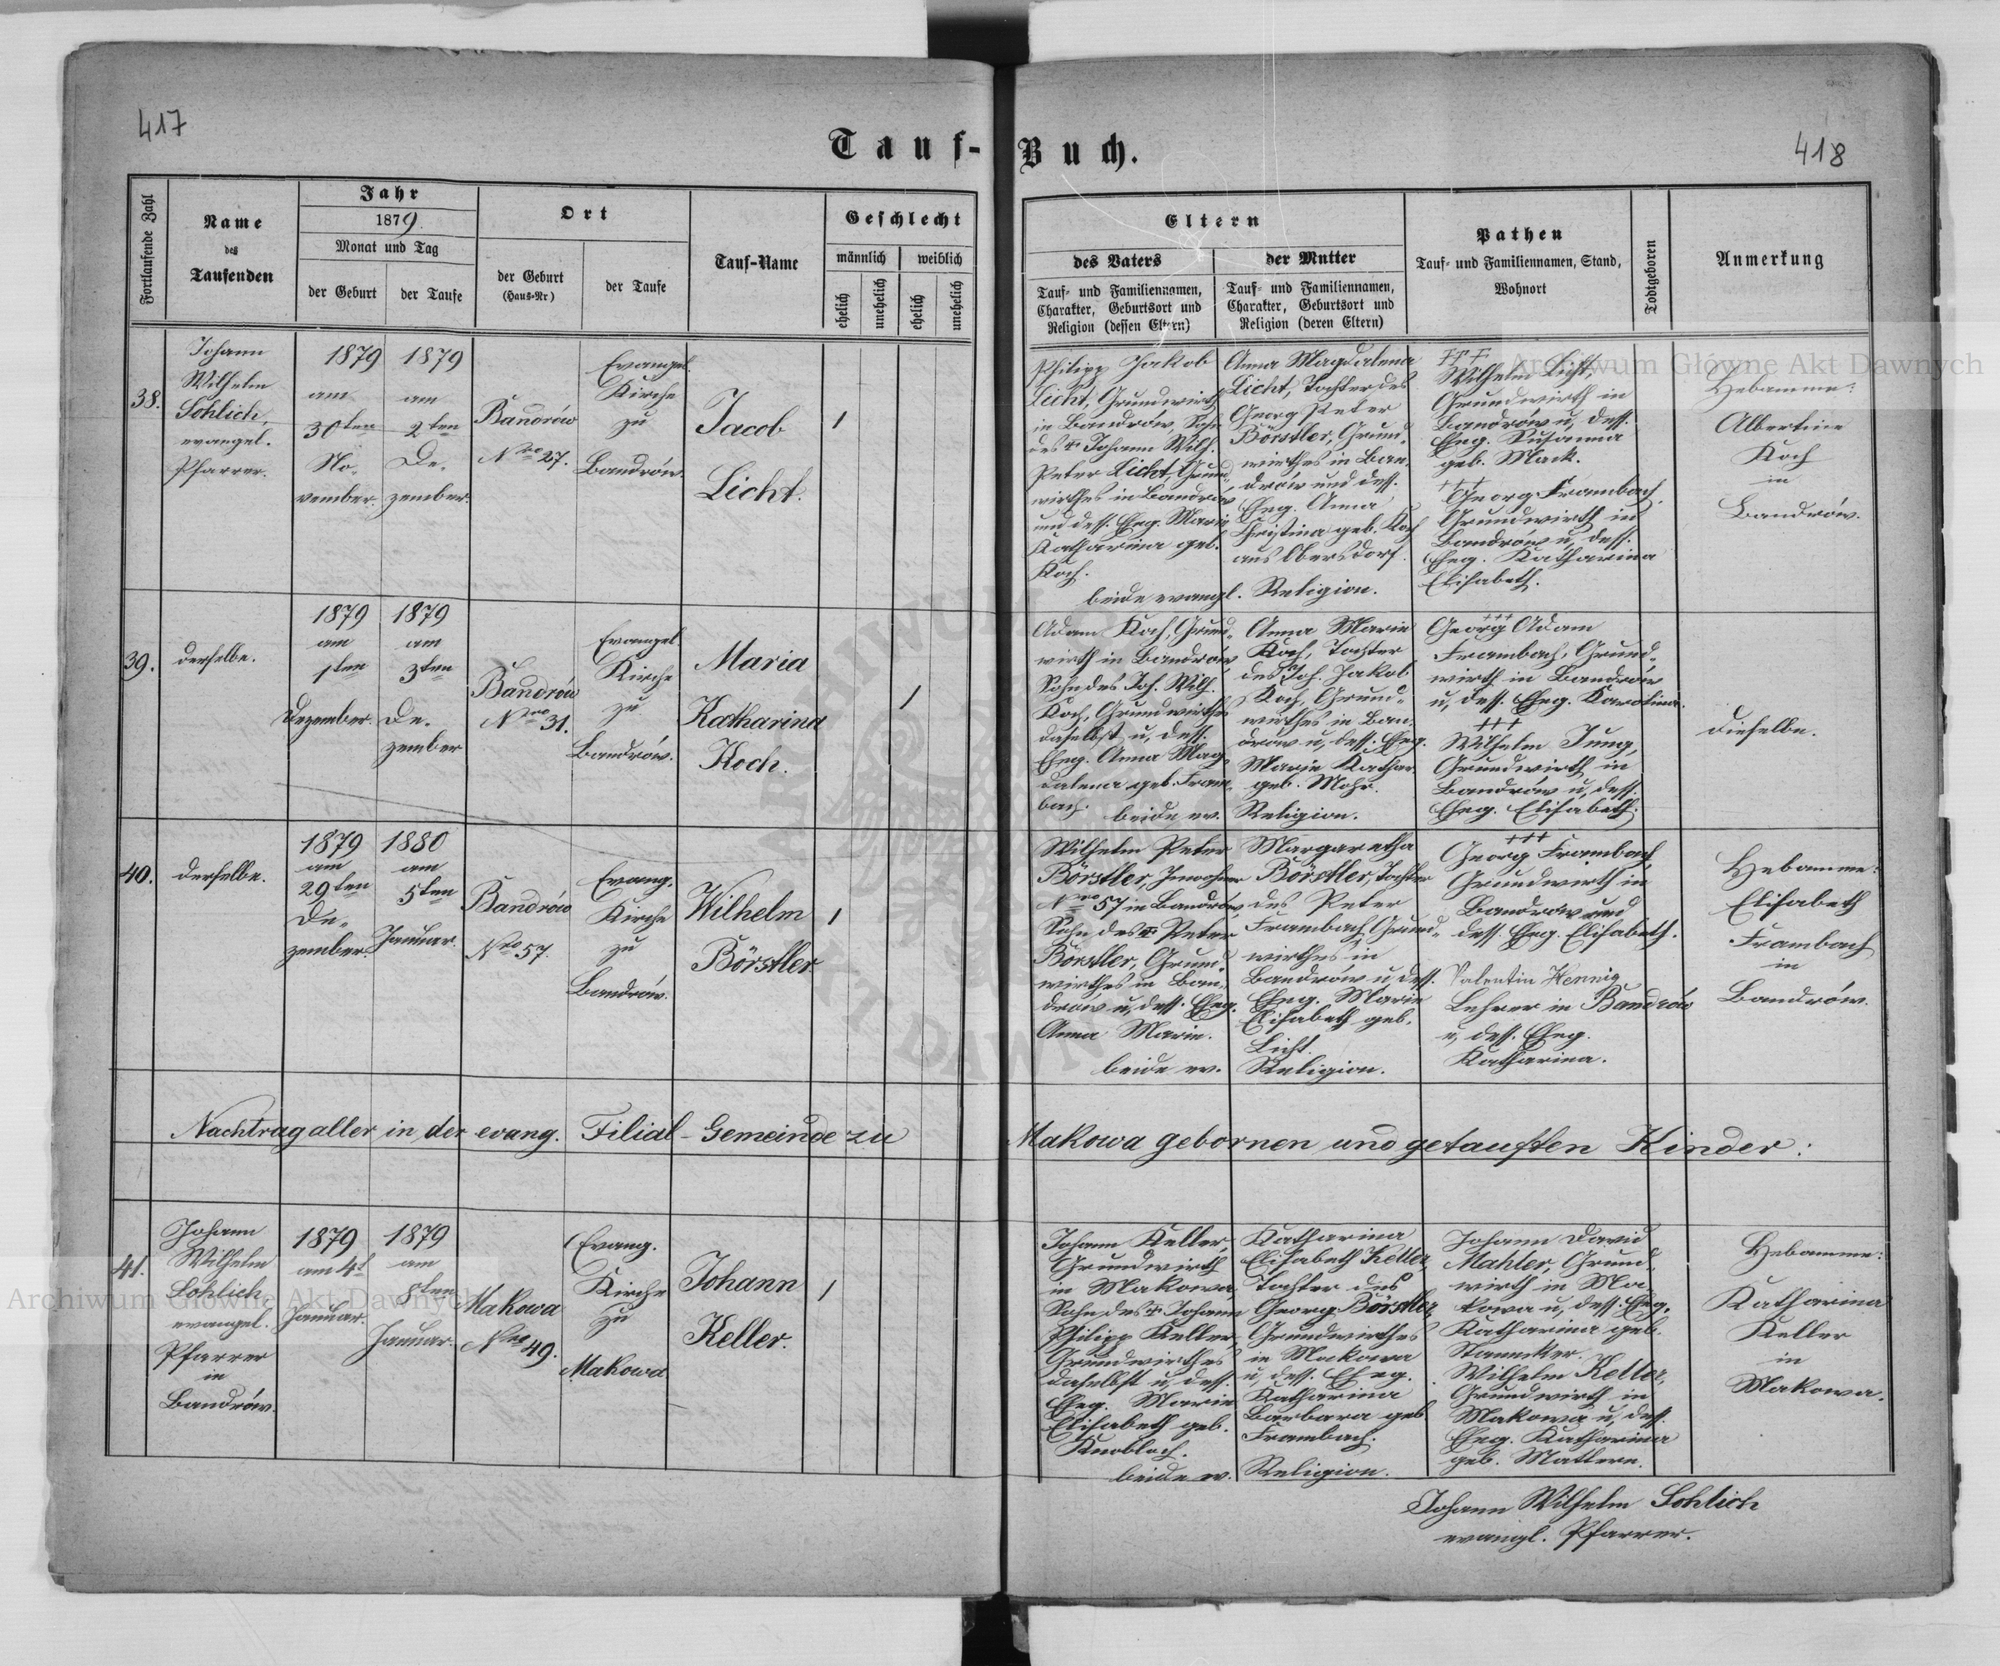 417
418
Tauf-Buch.
Fortlaufende Zahl
Name
des
Taufenden
Jahr
1879.
Monat und Tag
der Geburt
der Taufe
Ort
der Geburt
(Haus-Nr)
der Taufe
Tauf-Name
Geschlecht
männlich
weiblich
ehelich
unehelich
ehelich
unehelich
Eltern
des Vaters
Tauf- und Familiennamen,
Charakter, Geburtsort und
Religion (dessen Eltern)
der Mutter
Tauf- und Familiennamen,
Charakter, Geburtsort und
Religion (deren Eltern)
Pathen
Tauf- und Familiennamen, Stand,
Wohnort
Todtgeboren
Anmerkung
38.
Johann
Wilhelm
Sohlich,
evangel.
Pfarrer.
1879
am
30ten
No-
vember.
1879
am
2ten
De-
zember.
Bandrów
Nro 27.
Evangel.
Kirche
zu
Bandrów.
Jacob
Licht.
1
Philipp Jakob
Licht, Grundwirth
in Bandrów, Sohn
des † Johann Wilh.
Peter Licht, Grund-
wirthes in Bandrów
und dess. Eheg. Marie
Katharina geb.
Koch.
Anna Magdalena
Licht, Tochter des
Georg Peter
Börstler, Grund-
wirthes in Ban-
drów und dess.
Eheg. Anna
Christina geb. Koch
aus Obersdorf.
beide evangl. Religion.
+++
Wilhelm Licht,
Grundwirth in
Bandrów u. dess.
Eheg. Susanna
geb. Mack.
+++
Georg Frambach,
Grundwirth in
Bandrów u. dess.
Eheg. Katharina
Elisabeth.
Hebamme:
Albertine
Koch
in
Bandrów.
39.
derselbe.
1879
am
1ten
Dezember.
1879
am
3ten
De-
zember
Bandrów
Nro 31.
Evangel.
Kirche
zu
Bandrów.
Maria
Katharina
Koch.
1
Adam Koch, Grund-
wirth in Bandrów
Sohn des Joh. Wilh.
Koch, Grundwirthes
daselbst u. dess.
Eheg. Anna Mag-
dalena geb. Fram-
bach.
Anna Marie
Koch, Tochter
des Joh. Jakob
Koch, Grund-
wirthes in Ban-
drów u. dess. Eheg.
Marie Kathar.
geb. Mohr.
beide ev. Religion.
+++
Georg Adam
Frambach, Grund-
wirth in Bandrów
u. dess. Eheg. Karolina.
+++
Wilhelm Jung,
Grundwirth in
Bandrów u. dess.
Eheg. Elisabeth.
dieselbe.
40.
derselbe.
1879
am
29ten
De-
zember.
1880
am
5ten
Januar.
Bandrów
Nro 57.
Evang.
Kirche
zu
Bandrów.
Wilhelm
Börstler.
1
Wilhelm Peter
Börstler, Inwohner
Nro 57 in Bandrów
Sohn des † Peter
Börstler, Grund-
wirthes in Ban-
drów u. dess. Eheg.
Anna Marie.
Margaretha
Börstler, Tochter
des Peter
Frambach, Grund-
wirthes in
Bandrów u. dess.
Eheg. Marie
Elisabeth geb.
Licht.
beide ev. Religion.
+++
Georg Frambach,
Grundwirth in
Bandrów und
dess. Eheg. Elisabeth.
Valentin Hennig
Lehrer in Bandrów
u. dess. Eheg.
Katharina.
Hebamme:
Elisabeth
Frambach
in
Bandrów.
Nachtrag aller in der evang. Filial-Gemeinde zu Makowa gebornen und getauften Kinder:
41.
Johann
Wilhelm
Sohlich,
evangel.
Pfarrer
in
Bandrów.
1879
am 4t
Januar.
1879
am
8ten
Januar.
Makowa
Nro 49.
Evang.
Kirche
zu
Makowa
Johann
Keller.
1
Johann Keller,
Grundwirth
in Makowa,
Sohn des † Johann
Philipp Keller,
Grundwirthes
daselbst u. dess.
Eheg. Marie
Elisabeth geb.
Knobloch.
Katharina
Elisabeth Keller,
Tochter des
Georg Börstler,
Grundwirthes
in Makowa
u. dess. Eheg.
Katharina
Barbara geb
Frambach.
beide ev. Religion.
Johann David
Mahler, Grund-
wirth in Ma-
kowa u. dess. Eheg.
Katharina geb.
Wilhelm Keller,
Grundwirth in
Makowa u. dess.
Eheg. Katharina
geb. Mattern.
Hebamme:
Katharina
Keller
in
Makowa.
Johann Wilhelm Sohlich
evangl. Pfarrer.
Archiwum Główne Akt Dawnych
Archiwum Główne Akt Dawnych